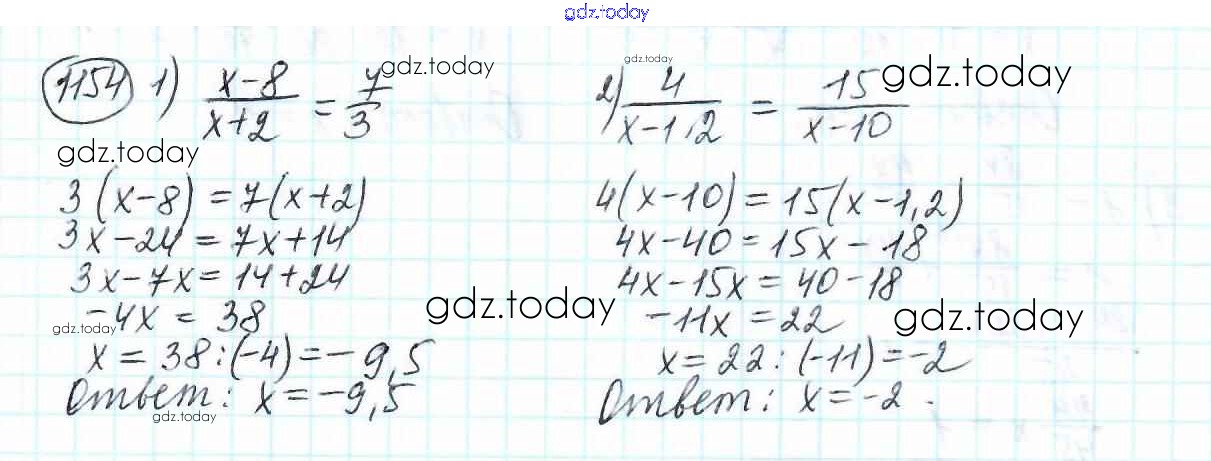 gdz.today
1154 1) x-8/x+2 = 7/3
gdz.today
3(x-8) = 7(x+2)
3x-24 = 7x+14
3x-7x = 14+24
-4x = 38
x = 38:(-4) = -9,5
Ответ: x = -9,5
gdz.today
gdz.today
gdz.today
gdz.today
gdz.today
2) 4/x-1,2 = 15/x-10
gdz.today
gdz.today
4(x-10) = 15(x-1,2)
4x-40 = 15x-18
4x-15x = 40-18
-11x = 22
gdz.today
x = 22:(-11) = -2
Ответ: x = -2.